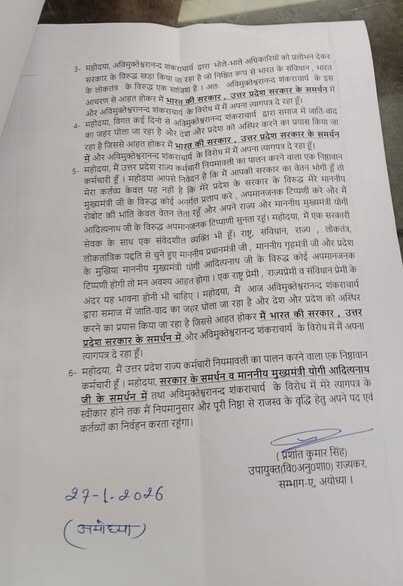 3- महोदया, अविमुक्तेश्वरानन्द शंकराचार्य द्वारा भोले-भाले अधिकारियों को प्रलोभन देकर
सरकार के विरूद्ध खड़ा किया जा रहा है जो निश्चित रूप से भारत के संविधान, भारत
के लोकतंत्र के विरूद्ध एक साजिश है। अतः अविमुक्तेश्वरानन्द शंकराचार्य के इस
आचरण से आहत होकर मैं भारत की सरकार, उत्तर प्रदेश सरकार के समर्थन में
और अविमुक्तेश्वरानन्द शंकराचार्य के विरोध में मैं अपना त्यागपत्र दे रहा हूँ।
4- महोदया, विगत कई दिनों से अविमुक्तेश्वरानन्द शंकराचार्य द्वारा समाज में जाति-वाद
का जहर घोला जा रहा है और देश और प्रदेश को अस्थिर करने का प्रयास किया जा
रहा है जिससे आहत होकर मैं भारत की सरकार, उत्तर प्रदेश सरकार के समर्थन
में और अविमुक्तेश्वरानन्द शंकराचार्य के विरोध में मैं अपना त्यागपत्र दे रहा हूँ।
5- महोदया, मैं उत्तर प्रदेश राज्य कर्मचारी नियमावली का पालन करने वाला एक निष्ठावान
कर्मचारी हूँ। महोदया आपसे निवेदन है कि मैं आपकी सरकार का वेतन भोगी हूँ तो
मेरा कर्तव्य केवल यह नहीं है कि मेरे प्रदेश के सरकार के विरूद्ध मेरे माननीय
मुख्यमंत्री जी के विरूद्ध कोई अनर्गल प्रलाप करे, अपमानजनक टिप्पणी करे और मैं
रोबोट की भांति केवल वेतन लेता रहूँ और अपने राज्य और माननीय मुख्यमंत्री योगी
आदित्यनाथ जी के विरूद्ध अपमानजनक टिप्पणी सुनता रहूं। महोदया, मैं एक सरकारी
सेवक के साथ एक संवेदशील व्यक्ति भी हूँ। राष्ट्र, संविधान, राज्य, लोकतंत्र,
लोकतांत्रिक पद्वति से चुने हुए माननीय प्रधानमंत्री जी, माननीय गृहमंत्री जी और प्रदेश
के मुखिया माननीय मुख्यमंत्री योगी आदित्यनाथ जी के विरूद्ध कोई अपमानजनक
टिप्पणी होगी तो मन अवश्य आहत होगा। एक राष्ट्र प्रेमी, राज्यप्रेमी व संविधान प्रेमी के
अंदर यह भावना होनी भी चाहिए। महोदया, मैं आज अविमुक्तेश्वरानन्द शंकराचार्य
द्वारा समाज में जाति-वाद का जहर घोला जा रहा है और देश और प्रदेश को अस्थिर
करने का प्रयास किया जा रहा है जिससे आहत होकर मैं भारत की सरकार, उत्तर
प्रदेश सरकार के समर्थन में और अविमुक्तेश्वरानन्द शंकराचार्य के विरोध में मैं अपना
त्यागपत्र दे रहा हूँ।
6- महोदया, मैं उत्तर प्रदेश राज्य कर्मचारी नियमावली का पालन करने वाला एक निष्ठावान
कर्मचारी हूँ। महोदया, सरकार के समर्थन व माननीय मुख्यमंत्री योगी आदित्यनाथ
जी के समर्थन में तथा अविमुक्तेश्वरानन्द शंकराचार्य के विरोध में मेरे त्यागपत्र के
स्वीकार होने तक मैं नियमानुसार और पूरी निष्ठा से राजस्व के वृद्धि हेतु अपने पद एवं
कर्तव्यों का निर्वहन करता रहूंगा।
(प्रशांत कुमार सिंह)
उपायुक्त(वि0अनु0शा0) राज्यकर,
सम्भाग-ए, अयोध्या।
27-1-2026
(अयोध्या)